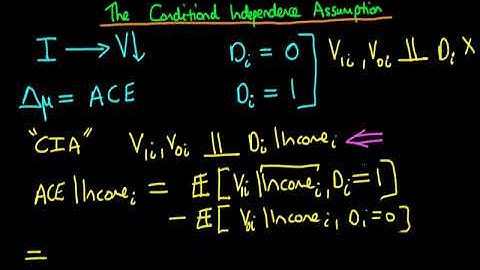 The Conditional Independence Assumption
I → V↓ Dᵢ = 0 ] V₁ᵢ, V₀ᵢ ⫫ Dᵢ X
Δμ = ACE Dᵢ = 1
"CIA" V₁ᵢ, V₀ᵢ ⫫ Dᵢ | Incomeᵢ ⇐
ACE | Incomeᵢ = E[V₁ᵢ | Incomeᵢ, Dᵢ = 1]
- E[V₀ᵢ | Incomeᵢ, Dᵢ = 0]
=